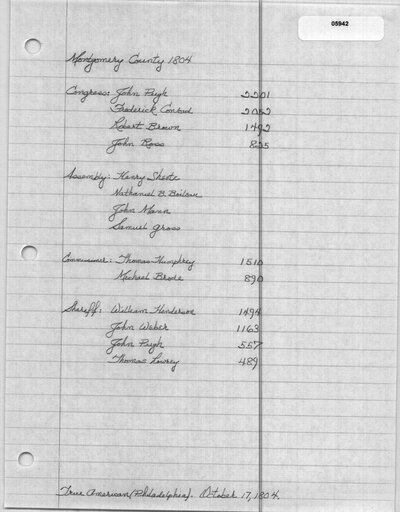 05942
Montgomery County 1804
Congress: John Pugh 2201
Frederick Conrad 2052
Robert Brown 1492
John Ross 825
Assembly: Henry Sheetz
Nathaniel B. Boileau
John Mann
Samuel Gross
Commissioner: Thomas Humphrey 1510
Michael Brode 890
Sheriff: William Henderson 1494
John Weber 1163
John Pugh 557
Thomas Lowrey 489
True American (Philadelphia). October 17, 1804.